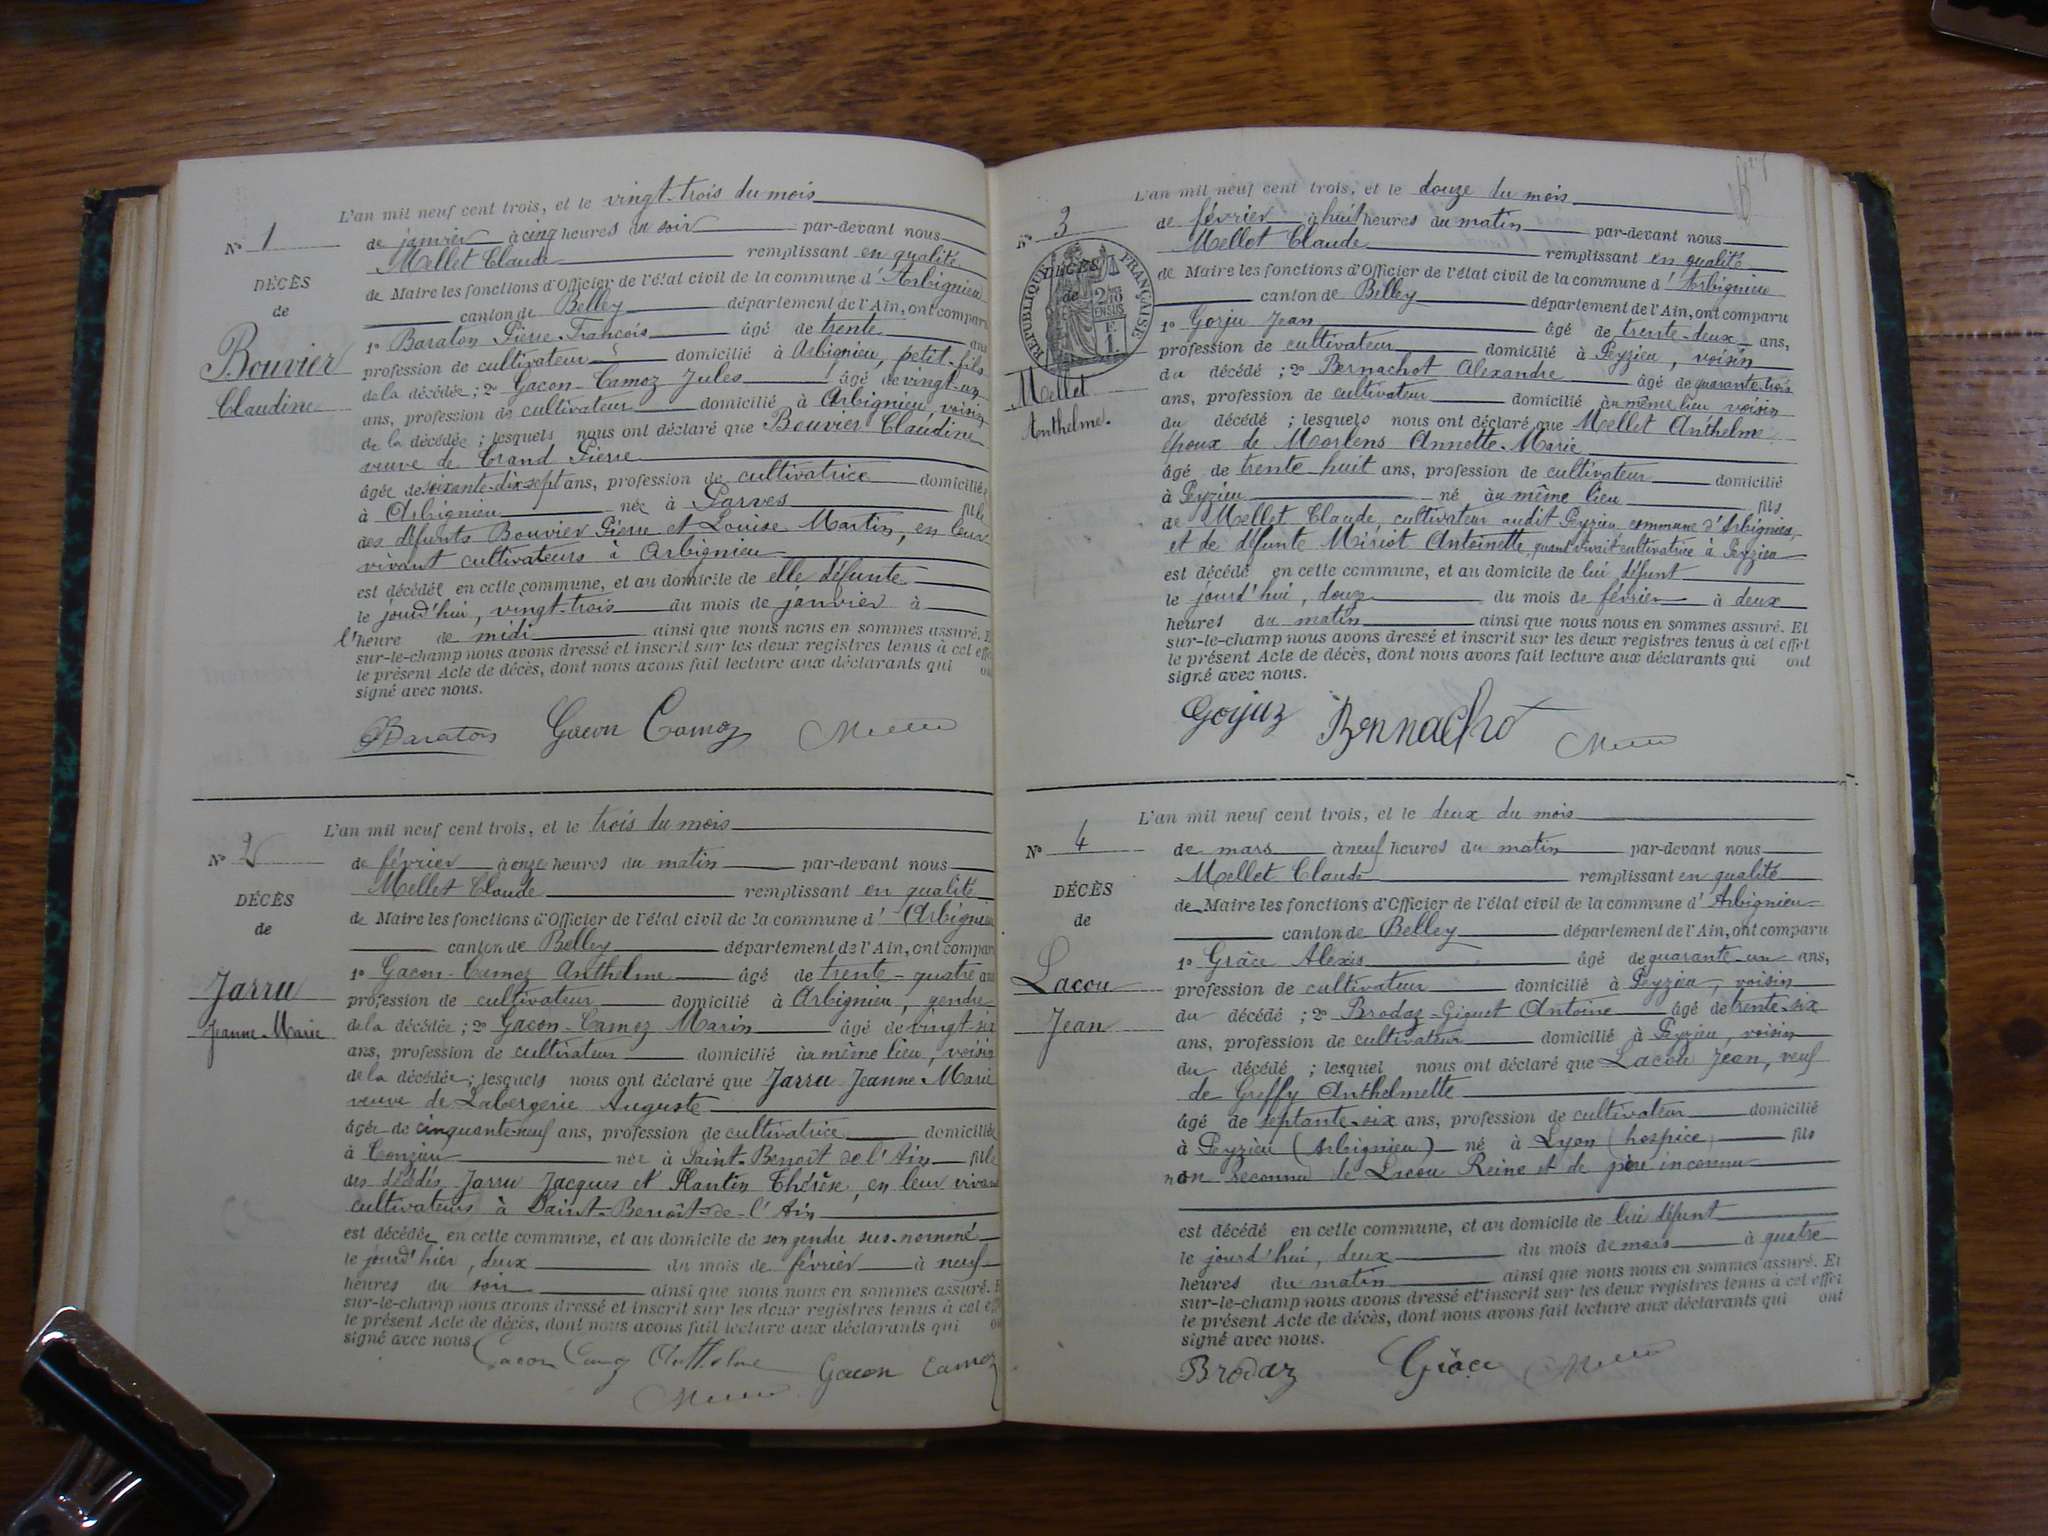 L'an mil neuf cent trois, et le vingt-trois du mois
N° 1 de janvier à cinq heures du soir par-devant nous
Mellet Claude remplissant en qualité
DÉCÈS de Maire les fonctions d'Officier de l'état civil de la commune d'Arbignieu
de canton de Belley département de l'Ain, ont comparu
1° Baraton Pierre-François âgé de trente ans
Bouvier profession de cultivateur domicilié à Arbignieu, petit-fils
Claudine de la décédée ; 2° Gacon-Camoz Jules âgé de vingt-un
ans, profession de cultivateur domicilié à Arbignieu, voisin
de la décédée ; lesquels nous ont déclaré que Bouvier Claudine
veuve de Grand Pierre
âgée de soixante-dix-sept ans, profession de cultivatrice domiciliée
à Arbignieu née à Parves fille
des défunts Bouvier Pierre et Louise Martin, en leur
vivant cultivateurs à Arbignieu
est décédée en cette commune, et au domicile de elle défunte
le jourd'hui, vingt-trois du mois de janvier à
l'heure de midi ainsi que nous nous en sommes assuré. E
sur-le-champ nous avons dressé et inscrit sur les deux registres tenus à cet effe
le présent Acte de décès, dont nous avons fait lecture aux déclarants qui o
signé avec nous.
Baraton Gacon Camoz
L'an mil neuf cent trois, et le trois du mois
N° 2 de février à onze heures du matin par-devant nous
Mellet Claude remplissant en qualité
DÉCÈS de Maire les fonctions d'Officier de l'état civil de la commune d'Arbignieu
de canton de Belley département de l'Ain, ont comparu
1° Gacon-Camoz Anthelme âgé de trente-quatre ans
Jarru profession de cultivateur domicilié à Arbignieu, gendre
Jeanne-Marie de la décédée ; 2° Gacon-Camoz Marin âgé de vingt-six
ans, profession de cultivateur domicilié au même lieu, voisin
de la décédée ; lesquels nous ont déclaré que Jarru Jeanne-Marie
veuve de Labergerie Auguste
âgée de cinquante-neuf ans, profession de cultivatrice domiciliée
à Conzieu née à Saint-Benoît de l'Ain fille
des décédés Jarru Jacques et Plantin Thérèse, en leur vivant
cultivateurs à Saint-Benoît-de-l'Ain
est décédée en cette commune, et au domicile de son gendre sus-nommé
le jourd'hier, deux du mois de février à neuf
heures du soir ainsi que nous nous en sommes assuré. E
sur-le-champ nous avons dressé et inscrit sur les deux registres tenus à cet eff
le présent Acte de décès, dont nous avons fait lecture aux déclarants qui o
signé avec nous.
Gacon Camoz Anthelme Gacon Camoz
L'an mil neuf cent trois, et le douze du mois
N° 3 de février à huit heures du matin par-devant nous
Mellet Claude remplissant en qualité
DÉCÈS de Maire les fonctions d'Officier de l'état civil de la commune d'Arbignieu
de canton de Belley département de l'Ain, ont comparu
RÉPUBLIQUE FRANÇAISE
1° Gorju Jean âgé de trente-deux ans,
profession de cultivateur domicilié à Peyzieu, voisin
Mellet du décédé ; 2° Bernachot Alexandre âgé de quarante-trois
ans, profession de cultivateur domicilié au même lieu voisin
Anthelme. du décédé ; lesquels nous ont déclaré que Mellet Anthelme
époux de Martens Annette-Marie
âgé de trente huit ans, profession de cultivateur domicilié
à Peyzieu né au même lieu fils
de Mellet Claude, cultivateur audit Peyzieu, commune d'Arbignieu,
et de défunte Miriot Antoinette, quand vivait cultivatrice à Peyzieu
est décédé en cette commune, et au domicile de lui défunt
le jourd'hui, douze du mois de février à deux
heures du matin ainsi que nous nous en sommes assuré. Et
sur-le-champ nous avons dressé et inscrit sur les deux registres tenus à cet effet
le présent Acte de décès, dont nous avons fait lecture aux déclarants qui ont
signé avec nous.
Gorjuz Bernachot
L'an mil neuf cent trois, et le deux du mois
N° 4 de mars à neuf heures du matin par-devant nous
Mellet Claude remplissant en qualité
DÉCÈS de Maire les fonctions d'Officier de l'état civil de la commune d'Arbignieu
de canton de Belley département de l'Ain, ont comparu
1° Grâce Alexis âgé de quarante-un ans,
Lacou profession de cultivateur domicilié à Peyzieu, voisin
Jean du décédé ; 2° Brodaz-Giguet Antoine âgé de trente-six
ans, profession de cultivateur domicilié à Peyzieu, voisin
du décédé ; lesquel nous ont déclaré que Lacou Jean, veuf
de Greffy Anthelmette
âgé de septante-six ans, profession de cultivateur domicilié
à Peyzieu (Arbignieu) né à Lyon (hospice) fils
non reconnu de Lacou Reine et de père inconnu
est décédé en cette commune, et au domicile de lui défunt
le jourd'hui, deux du mois de mars à quatre
heures du matin ainsi que nous nous en sommes assuré. Et
sur-le-champ nous avons dressé et inscrit sur les deux registres tenus à cet effet
le présent Acte de décès, dont nous avons fait lecture aux déclarants qui ont
signé avec nous.
Brodaz Grâce